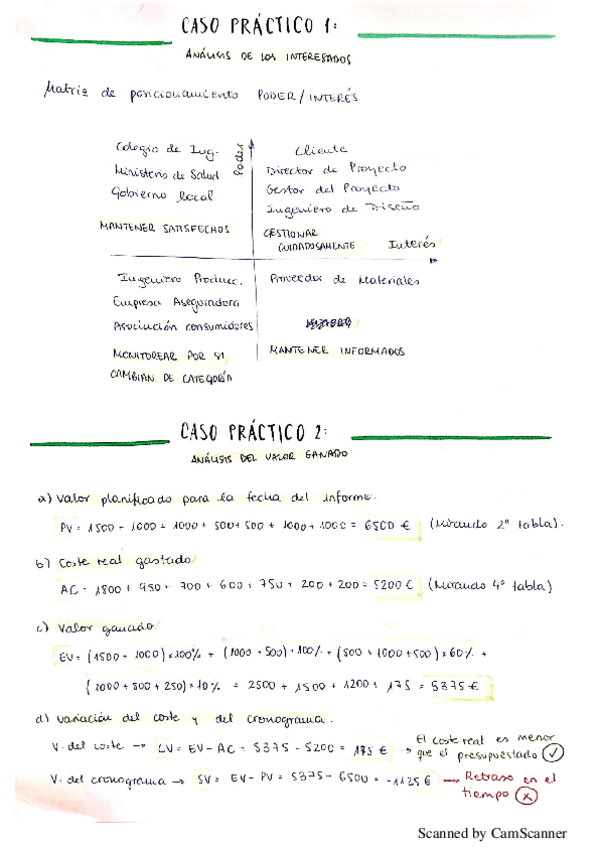 CASO PRÁCTICO 1:
ANÁLISIS DE LOS INTERESADOS
Matriz de posicionamiento PODER/INTERÉS
Poder
Colegio de Ing.
Ministerio de Salud
Gobierno local
MANTENER SATISFECHOS
Cliente
Director de Proyecto
Gestor del Proyecto
Ingeniero de Diseño
GESTIONAR
CUIDADOSAMENTE
Interés
Ingeniero Producc.
Empresa Aseguradora
Asociación consumidores
MONITOREAR POR SI
CAMBIAN DE CATEGORÍA
Proveedor de Materiales
MANTENER INFORMADOS
CASO PRÁCTICO 2:
ANÁLISIS DEL VALOR GANADO
a) Valor planificado para la fecha del informe.
PV = 1500 + 1000 + 1000 + 500 + 500 + 1000 + 1000 = 6500 € (Mirando 2ª tabla).
b) Coste real gastado
AC = 1800 + 950 + 700 + 600 + 750 + 200 + 200 = 5200 € (Mirando 4ª tabla)
c) Valor ganado
EV = (1500 + 1000) × 100% + (1000 + 500) · 100% + (500 + 1000 + 500) × 60% +
(1000 + 500 + 250) × 10% = 2500 + 1500 + 1200 + 175 = 5375 €
d) Variación del coste y del cronograma.
V. del coste → CV = EV - AC = 5375 - 5200 = 175 € → El coste real es menor
que el presupuestado ✓
V. del cronograma → SV = EV - PV = 5375 - 6500 = -1125 € → Retraso en el
tiempo ✗
Scanned by CamScanner